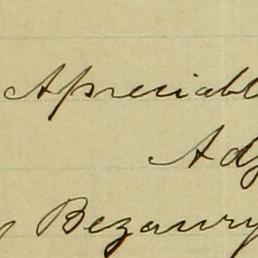 Apreciabl
Adj
y Bezaury